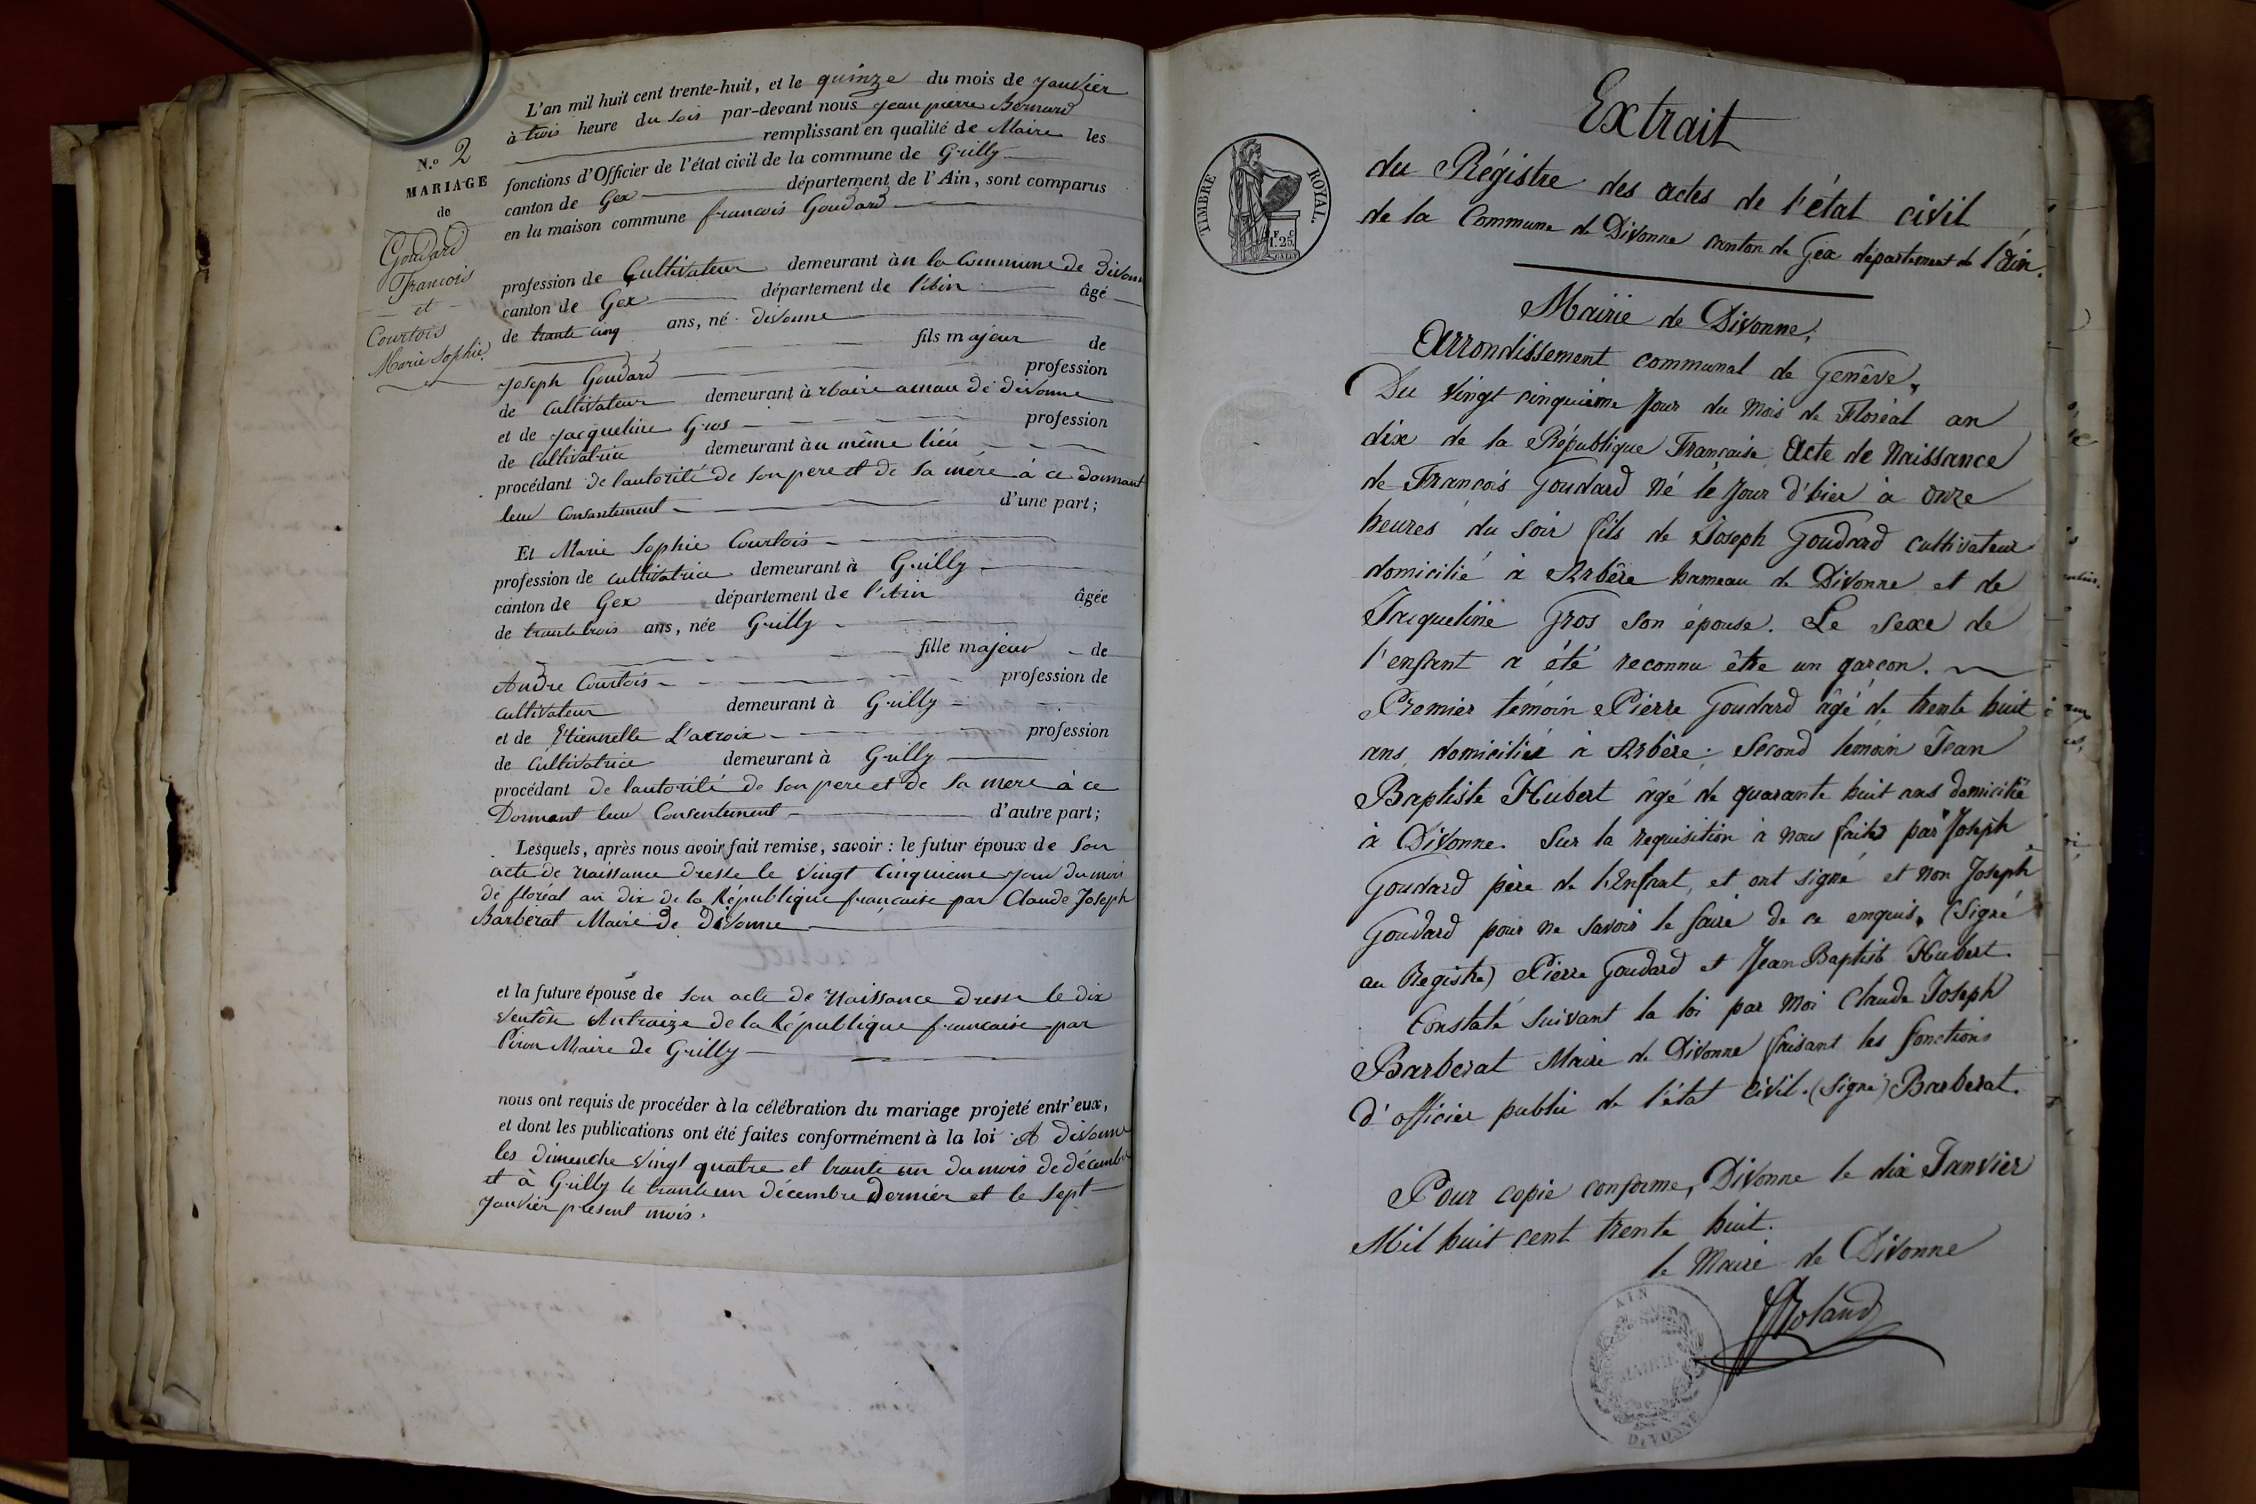 L'an mil huit cent trente-huit, et le quinze du mois de janvier
à trois heure du soir par-devant nous jean pierre Bernard
remplissant en qualité de Maire les
fonctions d'Officier de l'état civil de la commune de Grilly
canton de Gex département de l'Ain, sont comparus
en la maison commune francois Goudard
N.° 2
MARIAGE
de
Goudard
Francois
et
Courtois
Marie Sophie
profession de Cultivateur demeurant à n la Commune de divonne
canton de Gex département de l'Ain âgé
de trante cinq ans, né divonne
fils majeur de
joseph Goudard profession
de Cultivateur demeurant à de divonne
et de jacqueline Gros profession
de Cultivatrice demeurant à u même lieu
procédant de lautorité de son pere et de sa mére à ce donnant
leur Consantement d'une part;
Et Marie Sophie Courtois
profession de cultivatrice demeurant à Grilly
canton de Gex département de l'Ain âgée
de trante trois ans, née Grilly
fille majeur de
Andre Courtois profession de
cultivateur demeurant à Grilly
et de Etiennette L'acroix profession
de Cultivatrice demeurant à Grilly
procédant de lautorité de son pere et de sa mere à ce
Donnant leur Consentement d'autre part;
Lesquels, après nous avoir fait remise, savoir : le futur époux de son
acte de naissance dresse le vingt Cinquieme jour du moi
de floréal an dix de la République francaise par Claude Joseph
Barberat Maire de divonne
et la future épouse de son acte de naissance dresse le dix
ventôse An traize de la République francaise par
Maire de Grilly
nous ont requis de procéder à la célébration du mariage projeté entr'eux,
et dont les publications ont été faites conformément à la loi A divonne
les dimenche vingt quatre et trante un du mois de décembre
et à Grilly le trante un décembre dernier et le sept
janvier présent mois.
TIMBRE ROYAL
1.25
Extrait
du Régistre des actes de l'état civil
de la Commune de Divonne canton de Gex département de l'Ain.
Mairie de Divonne,
Arrondissement communal de Genêve,
Du vingt cinquième jour du mois de Floréal an
dix de la République Française, Acte de Naissance
de François Goudard né le jour d'hier à onze
heures du soir fils de Joseph Goudard cultivateur
domicilié à Arbêre hameau de Divonne et de
Jacqueline Gros son épouse. Le sexe de
l'enfant a été reconnu être un garçon.
Premier témoin Pierre Goudard âgé de trente huit
ans, domicilié à Arbère; Second témoin Jean
Baptiste Hubert âgé de quarante huit ans domicilié
à Divonne. Sur la requisition à nous faite par Joseph
Goudard père de l'Enfant, et ont signé et non Joseph
Goudard pour ne savoir le faire de ce enquis. (Signé
au Registre) Pierre Goudard et Jean Baptiste Hubert.
Constaté suivant la loi par moi Claude Joseph
Barberat Maire de Divonne faisant les fonctions
d'officier public de l'état civil. (Signé) Barberat.
Pour copie conforme, Divonne le dix Janvier
Mil huit cent trente huit.
le Maire de Divonne
Roland
AIN
MAIRIE
DIVONNE